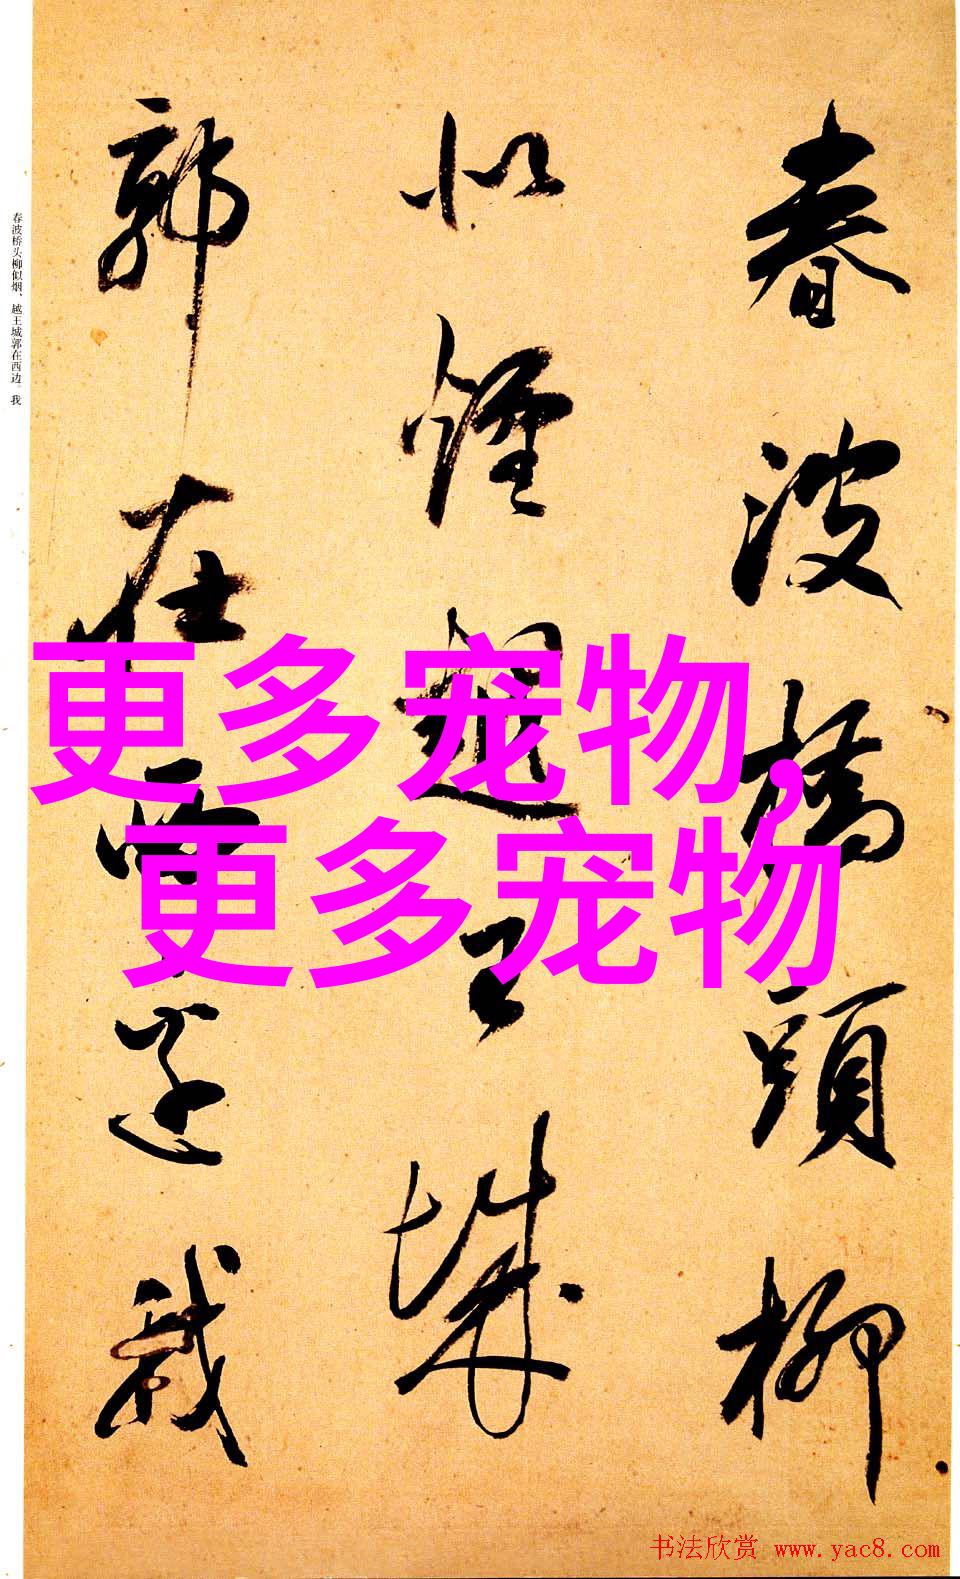 春波橋頭柳
似煙越王城
郭在西邊我
春波桥头柳似烟、越王城郭在西边。我
更多宠物,
更多宠物
书法欣赏 www.yac8.com